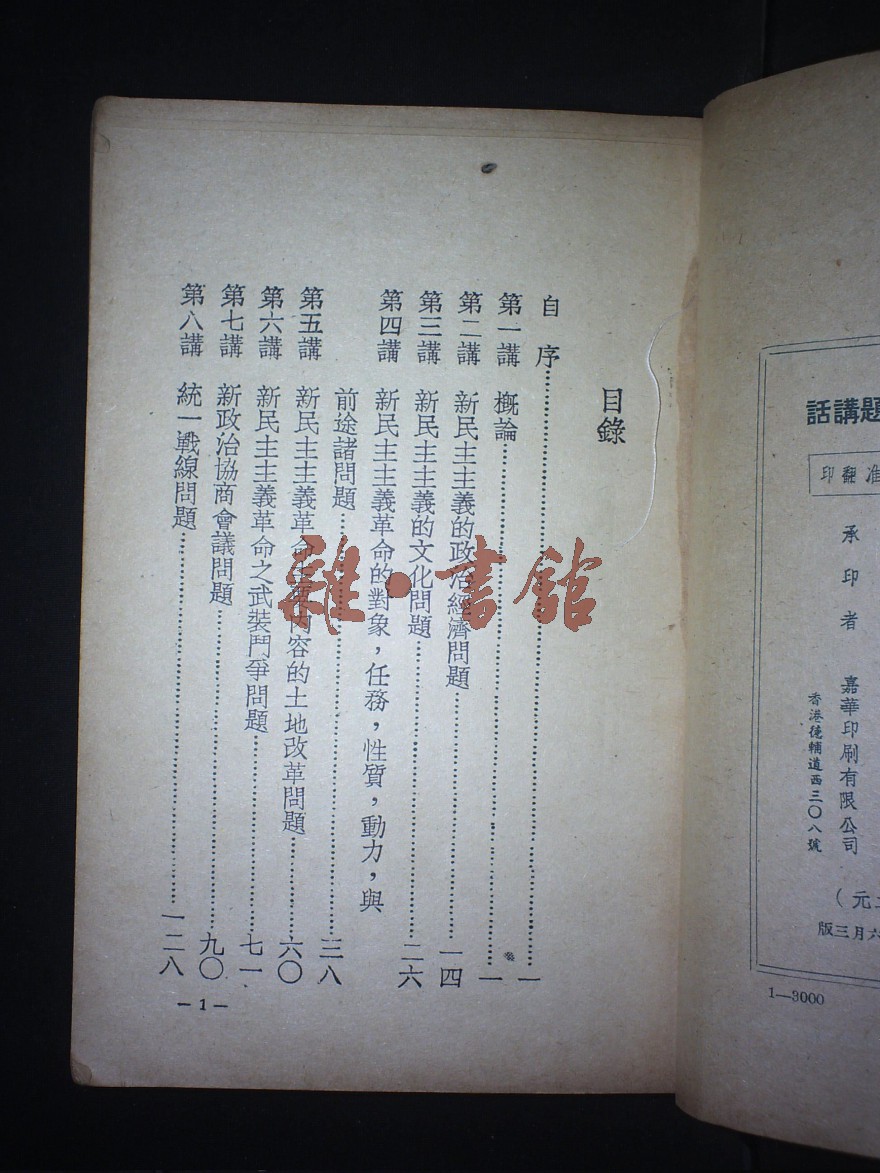 目錄
自序……一
第一講 概論……一
第二講 新民主主義的政治經濟問題……一四
第三講 新民主主義的文化問題……二六
第四講 新民主主義革命的對象，任務，性質，動力，與
前途諸問題……三八
第五講 新民主主義革命主要內容的土地改革問題……六〇
第六講 新民主主義革命之武裝鬥爭問題……七一
第七講 新政治協商會議問題……九〇
第八講 統一戰線問題……一二八
—1—
雜·書館
題講話
准翻印
承印者
嘉華印刷有限公司
香港德輔道西三〇八號
元）
六月三版
1—3000